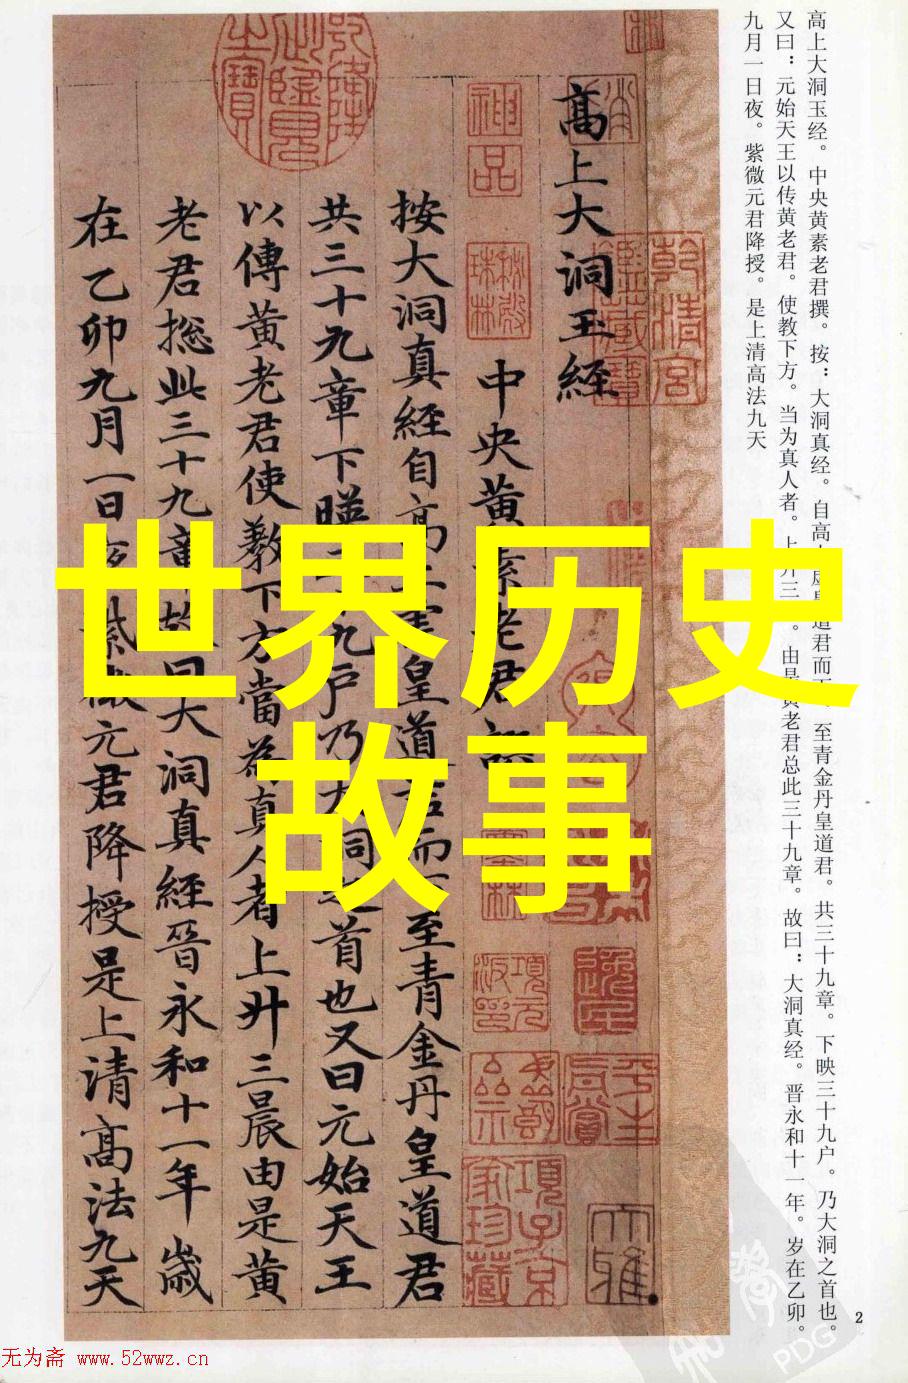 世界历史
故事
高上大洞玉经。中央黄素老君撰。按：大洞真经。自高道君而至青金丹皇道君。共三十九章。下映三十九户。乃大洞之首也。
又曰：元始天王以传黄老君。使教下方。当为真人者。上升三由是黄老君总此三十九章。故曰：大洞真经。晋永和十一年。岁在乙卯。
九月一日夜。紫微元君降授。是上清高法九天
高上大洞玉經
中央黄素老君
按大洞真經自高皇道君而至青金丹皇道君
共三十九章下暎九户乃大洞之首也又曰元始天王
以傳黄老君使教下方當為真人者上升三晨由是黄
老君揔此三十九章故曰大洞真經晉永和十一年歲
在乙卯九月一日夜紫微元君降授是上清髙法九天
乾清宮鑑藏寶
神品
項元汴印
逸民
項子京家珍藏
大雅
2
无为斋 www.52wwz.cn
PDG